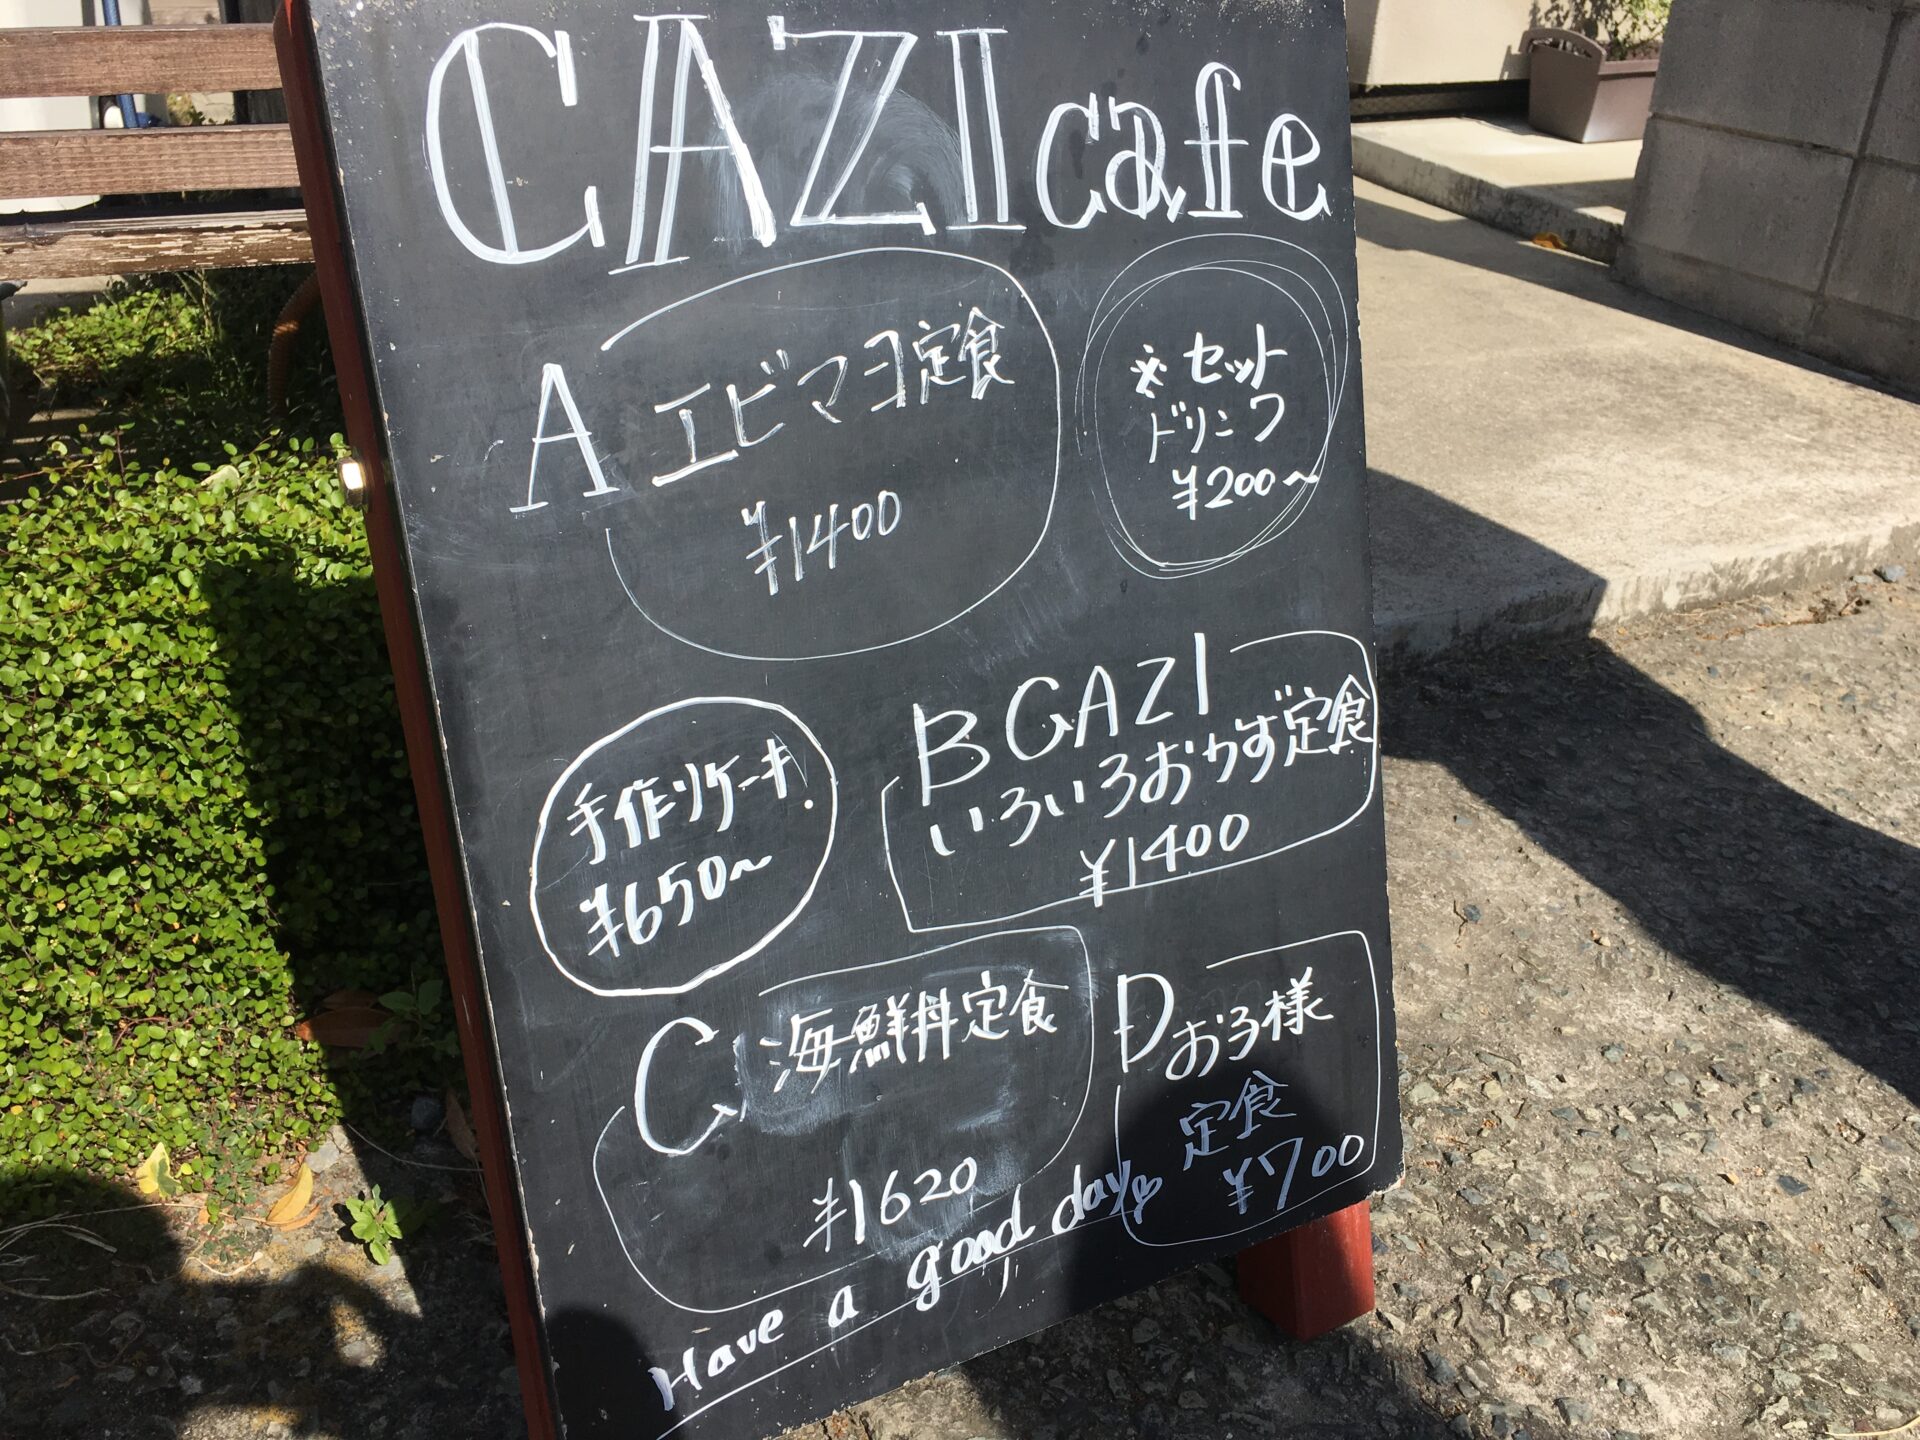 CAZI cafe
A エビマヨ定食
¥1400
※セット
ドリンク
¥200～
B CAZI
いろいろおかず定食
¥1400
手作りケーキ
¥650～
C 海鮮丼定食
¥1620
D お子様
定食
¥700
Have a good day